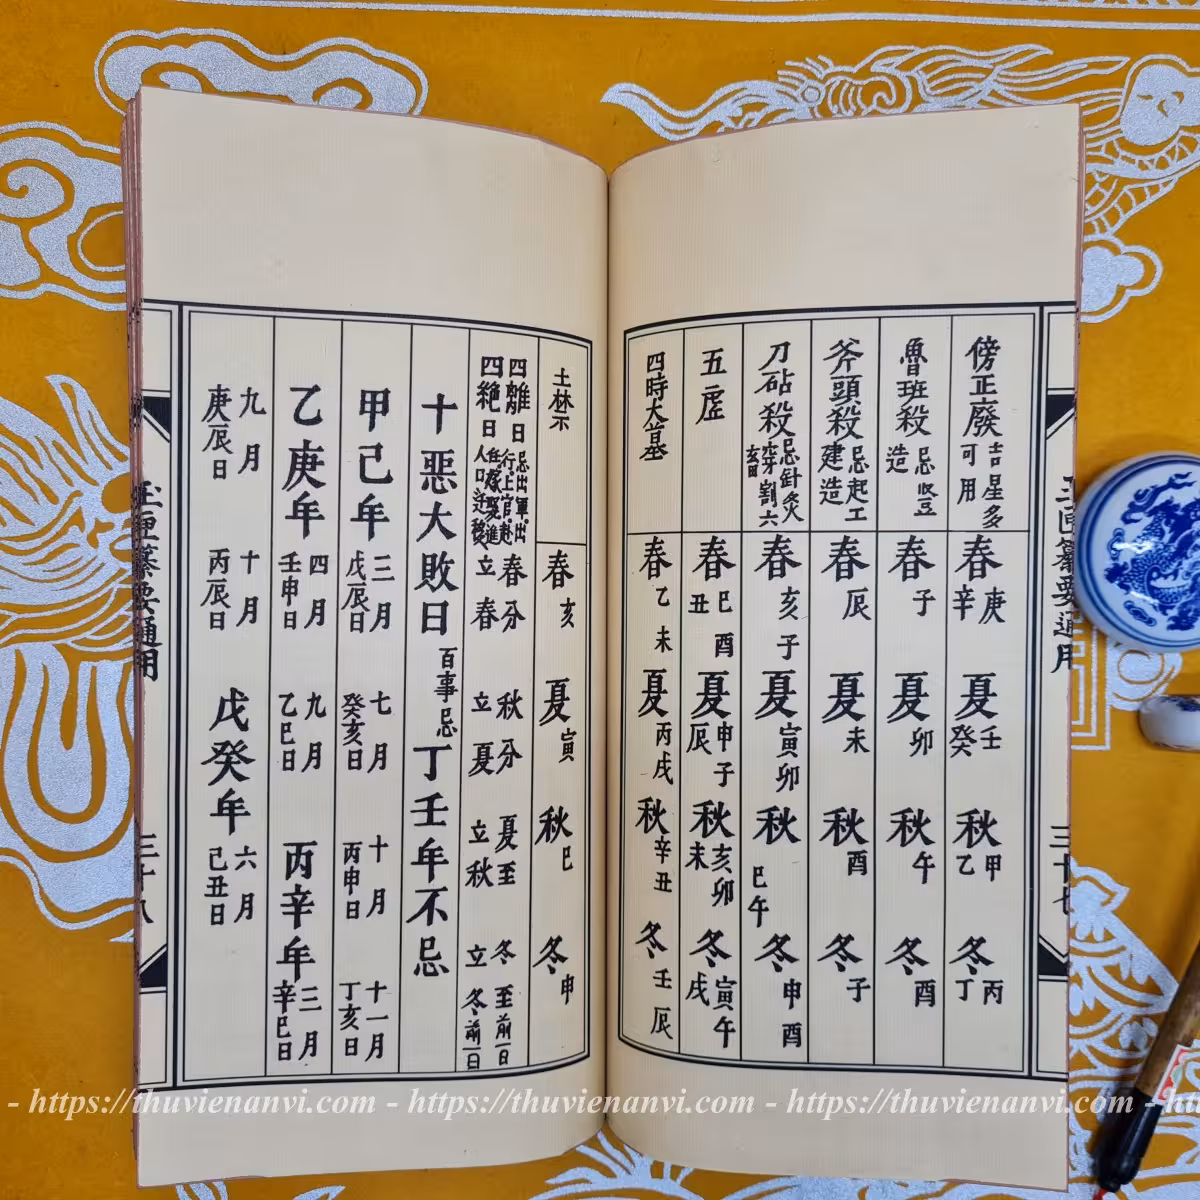 傍正廢 吉星多可用 春 庚辛 夏 壬癸 秋 甲乙 冬 丙丁
魯班殺 忌竪造 春 子 夏 卯 秋 午 冬 酉
斧頭殺 忌起工建造 春 辰 夏 未 秋 酉 冬 子
刀砧殺 忌針灸穿割六畜 春 亥子 夏 寅卯 秋 巳午 冬 申酉
五虛 春 巳酉丑 夏 申子辰 秋 亥卯未 冬 寅午戌
四時大墓 春 乙未 夏 丙戌 秋 辛丑 冬 壬辰
土禁 春 亥 夏 寅 秋 巳 冬 申
四離日 四絕日 忌出軍出行上官赴任嫁娶進人口迁移 春分 秋分 夏至 冬至前一日 立春 立夏 立秋 立冬前一日
十惡大敗日 百事忌 丁壬年不忌
甲己年 三月戊辰日 七月癸亥日 十月丙申日 十一月丁亥日
乙庚年 四月壬申日 九月乙巳日 丙辛年 三月辛巳日
九月庚辰日 十月丙辰日 戊癸年 六月己丑日
玉匣纂要通用 三十七
玉匣纂要通用 三十八
- https://thuvienanvi.com - https://thuvienanvi.com - https://thuvienanvi.com -